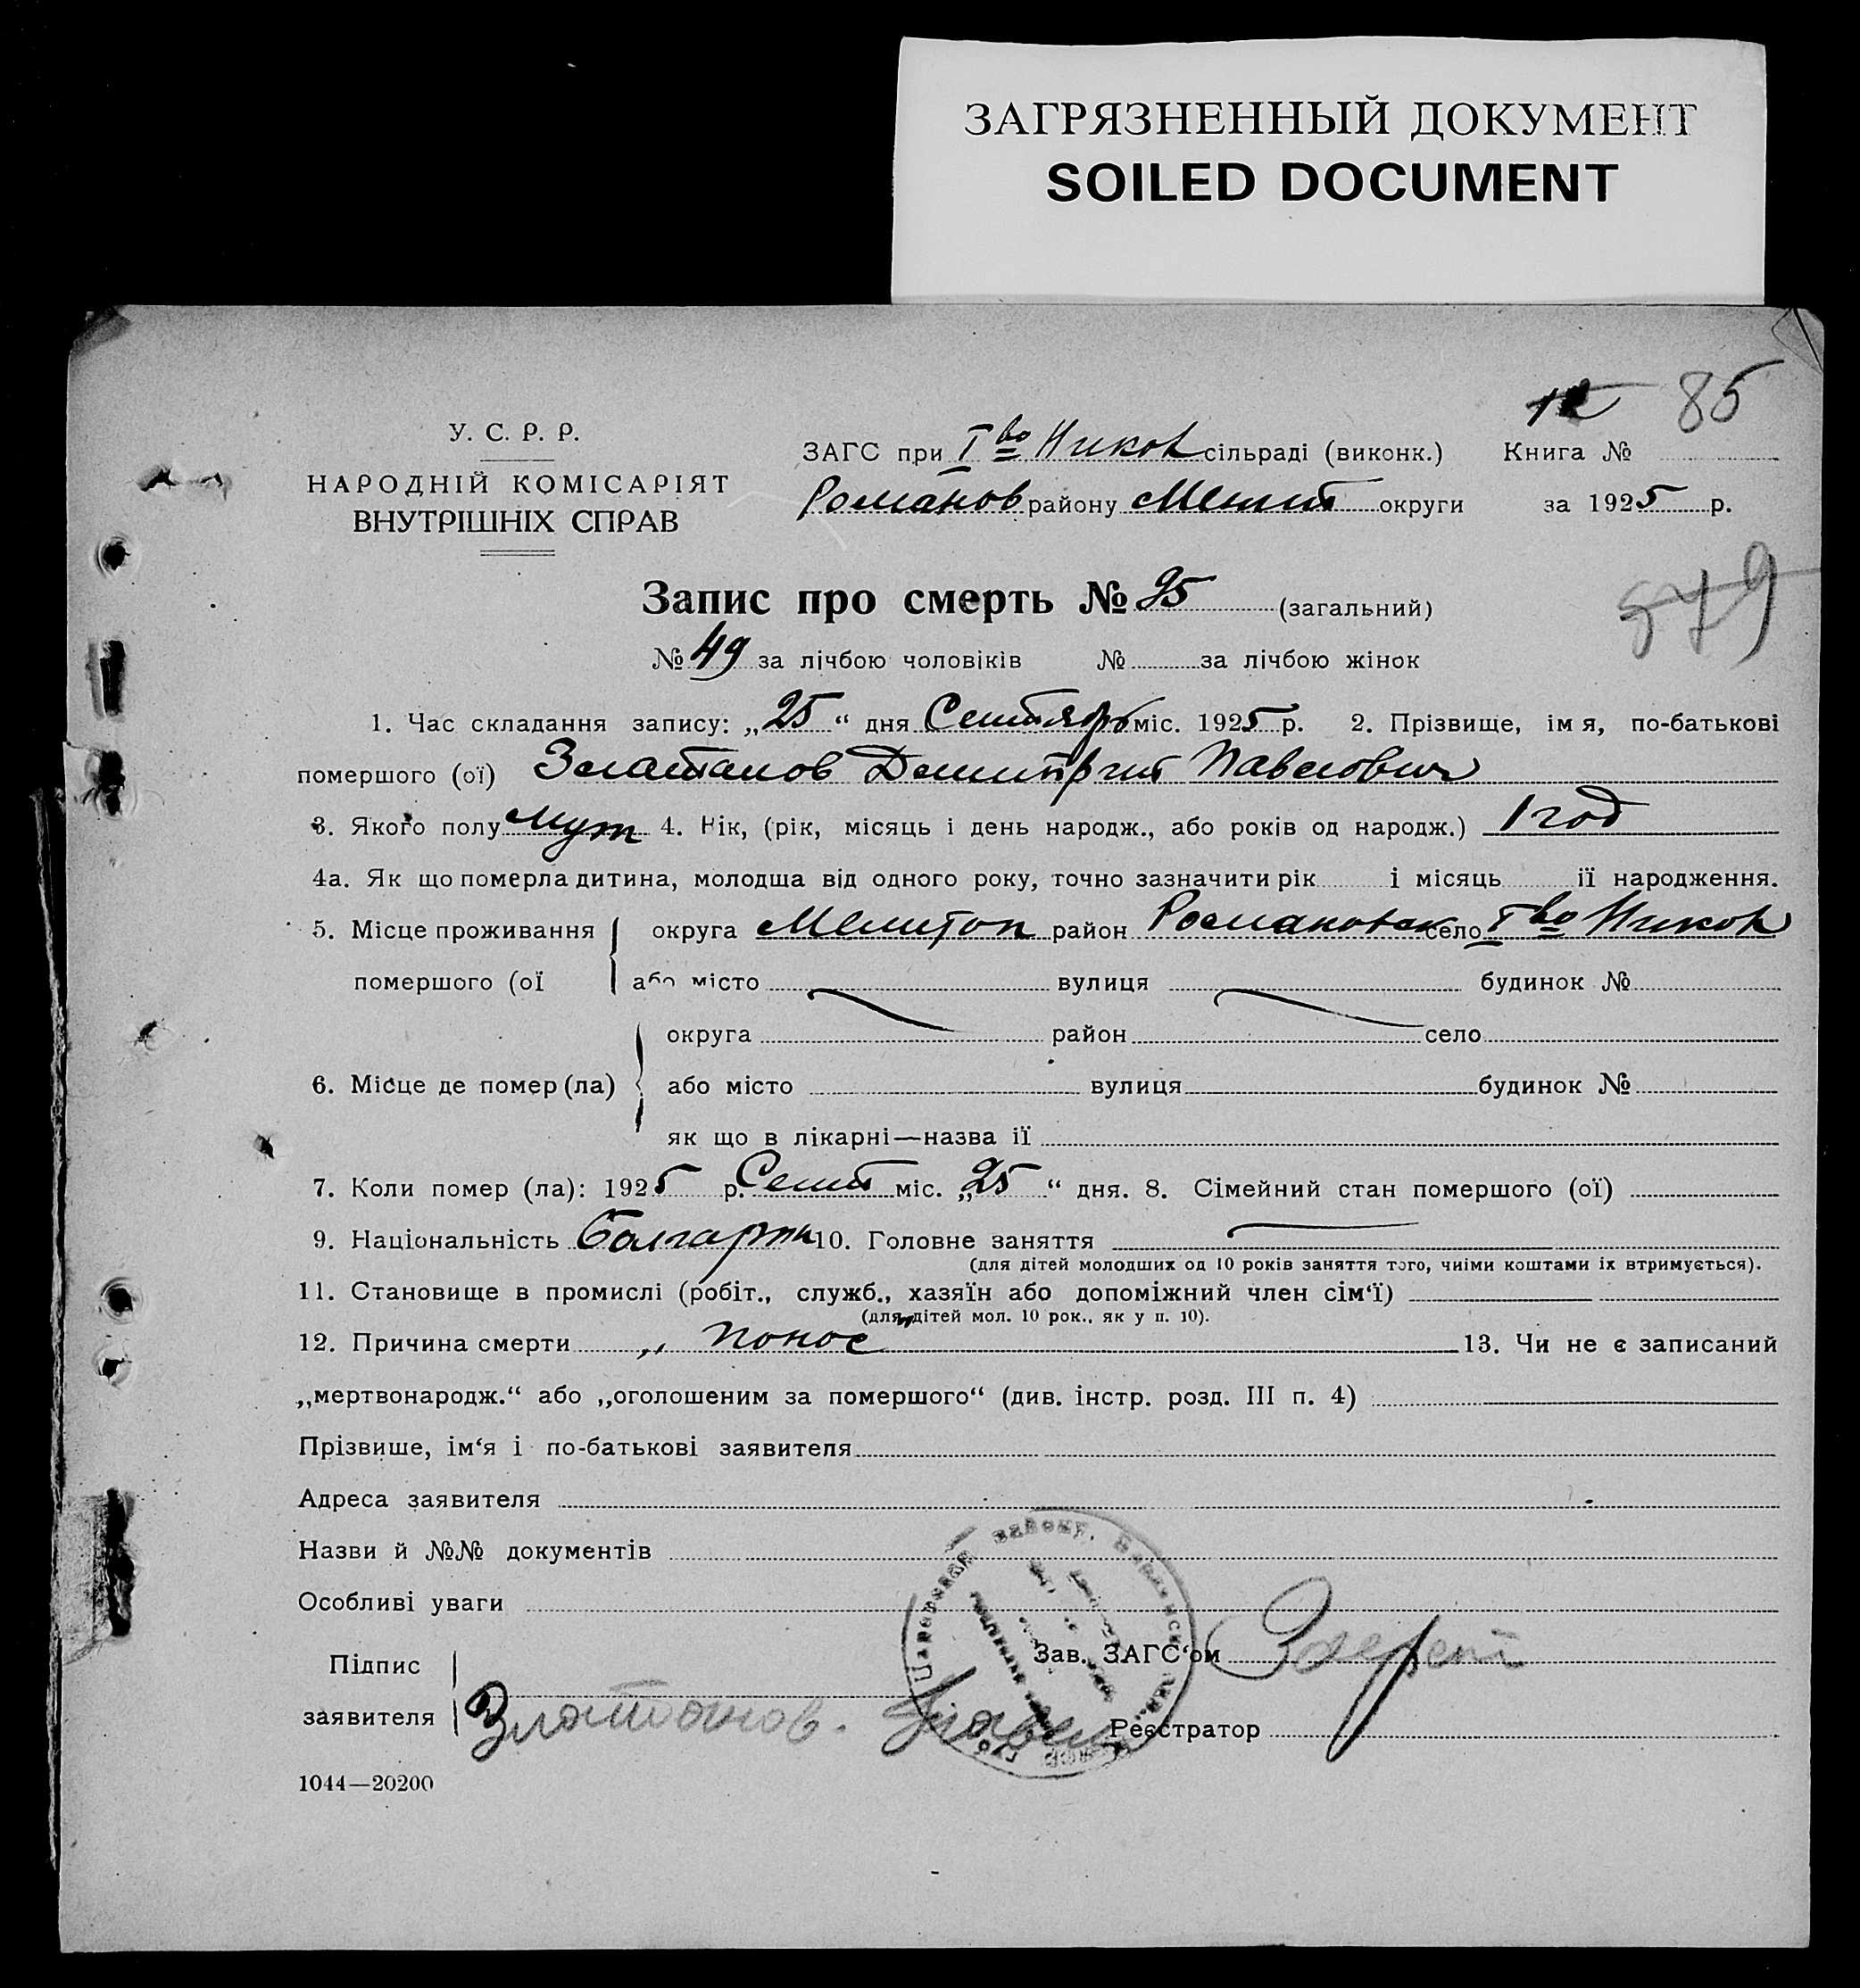 ЗАГРЯЗНЕННЫЙ ДОКУМЕНТ
SOILED DOCUMENT
85
У. С. Р. Р.
НАРОДНІЙ КОМІСАРІЯТ
ВНУТРІШНІХ СПРАВ
ЗАГС при I во Никол сільраді (виконк.) Книга №
Романов району Мелит округи за 1925 р.
Запис про смерть № 95 (загальний)
579
№ 49 за лічбою чоловіків № за лічбою жінок
1. Час складання запису: „25“ дня Сентябр міс. 1925 р. 2. Прізвище, ім я, по-батькові
помершого (ої) Златанов Димитрий Павлович
3. Якого полу муж 4. Вік, (рік, місяць і день народж., або років од народж.) 1 год
4а. Як що померла дитина, молодша від одного року, точно зазначити рік і місяць її народження.
5. Місце проживання округа Мелитоп район Романовск село I во Никол
помершого (ої або місто вулиця будинок №
округа район село
6. Місце де помер (ла) або місто вулиця будинок №
як що в лікарні—назва її
7. Коли помер (ла): 1925 р. Сент міс. „25“ дня. 8. Сімейний стан помершого (ої)
9. Національність болгарин 10. Головне заняття
(для дітей молодших од 10 років заняття того, чиїми коштами їх втримується).
11. Становище в промислі (робіт., служб., хазяїн або допоміжний член сім‘ї)
(для дітей мол. 10 рок., як у п. 10).
12. Причина смерти „ понос 13. Чи не є записаний
„мертвонародж.“ або „оголошеним за помершого“ (див. інстр. розд. III п. 4)
Прізвише, ім‘я і по-батькові заявителя
Адреса заявителя
Назви й №№ документів
Особливі уваги
Підпис
заявителя Златанов. Павел
Зав. ЗАГС‘ом
Реєстратор
1044—20200